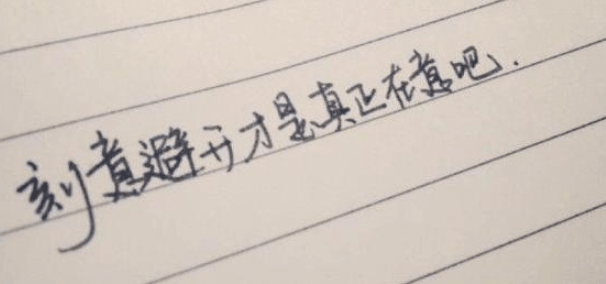 刻意避开才是真正在意吧.